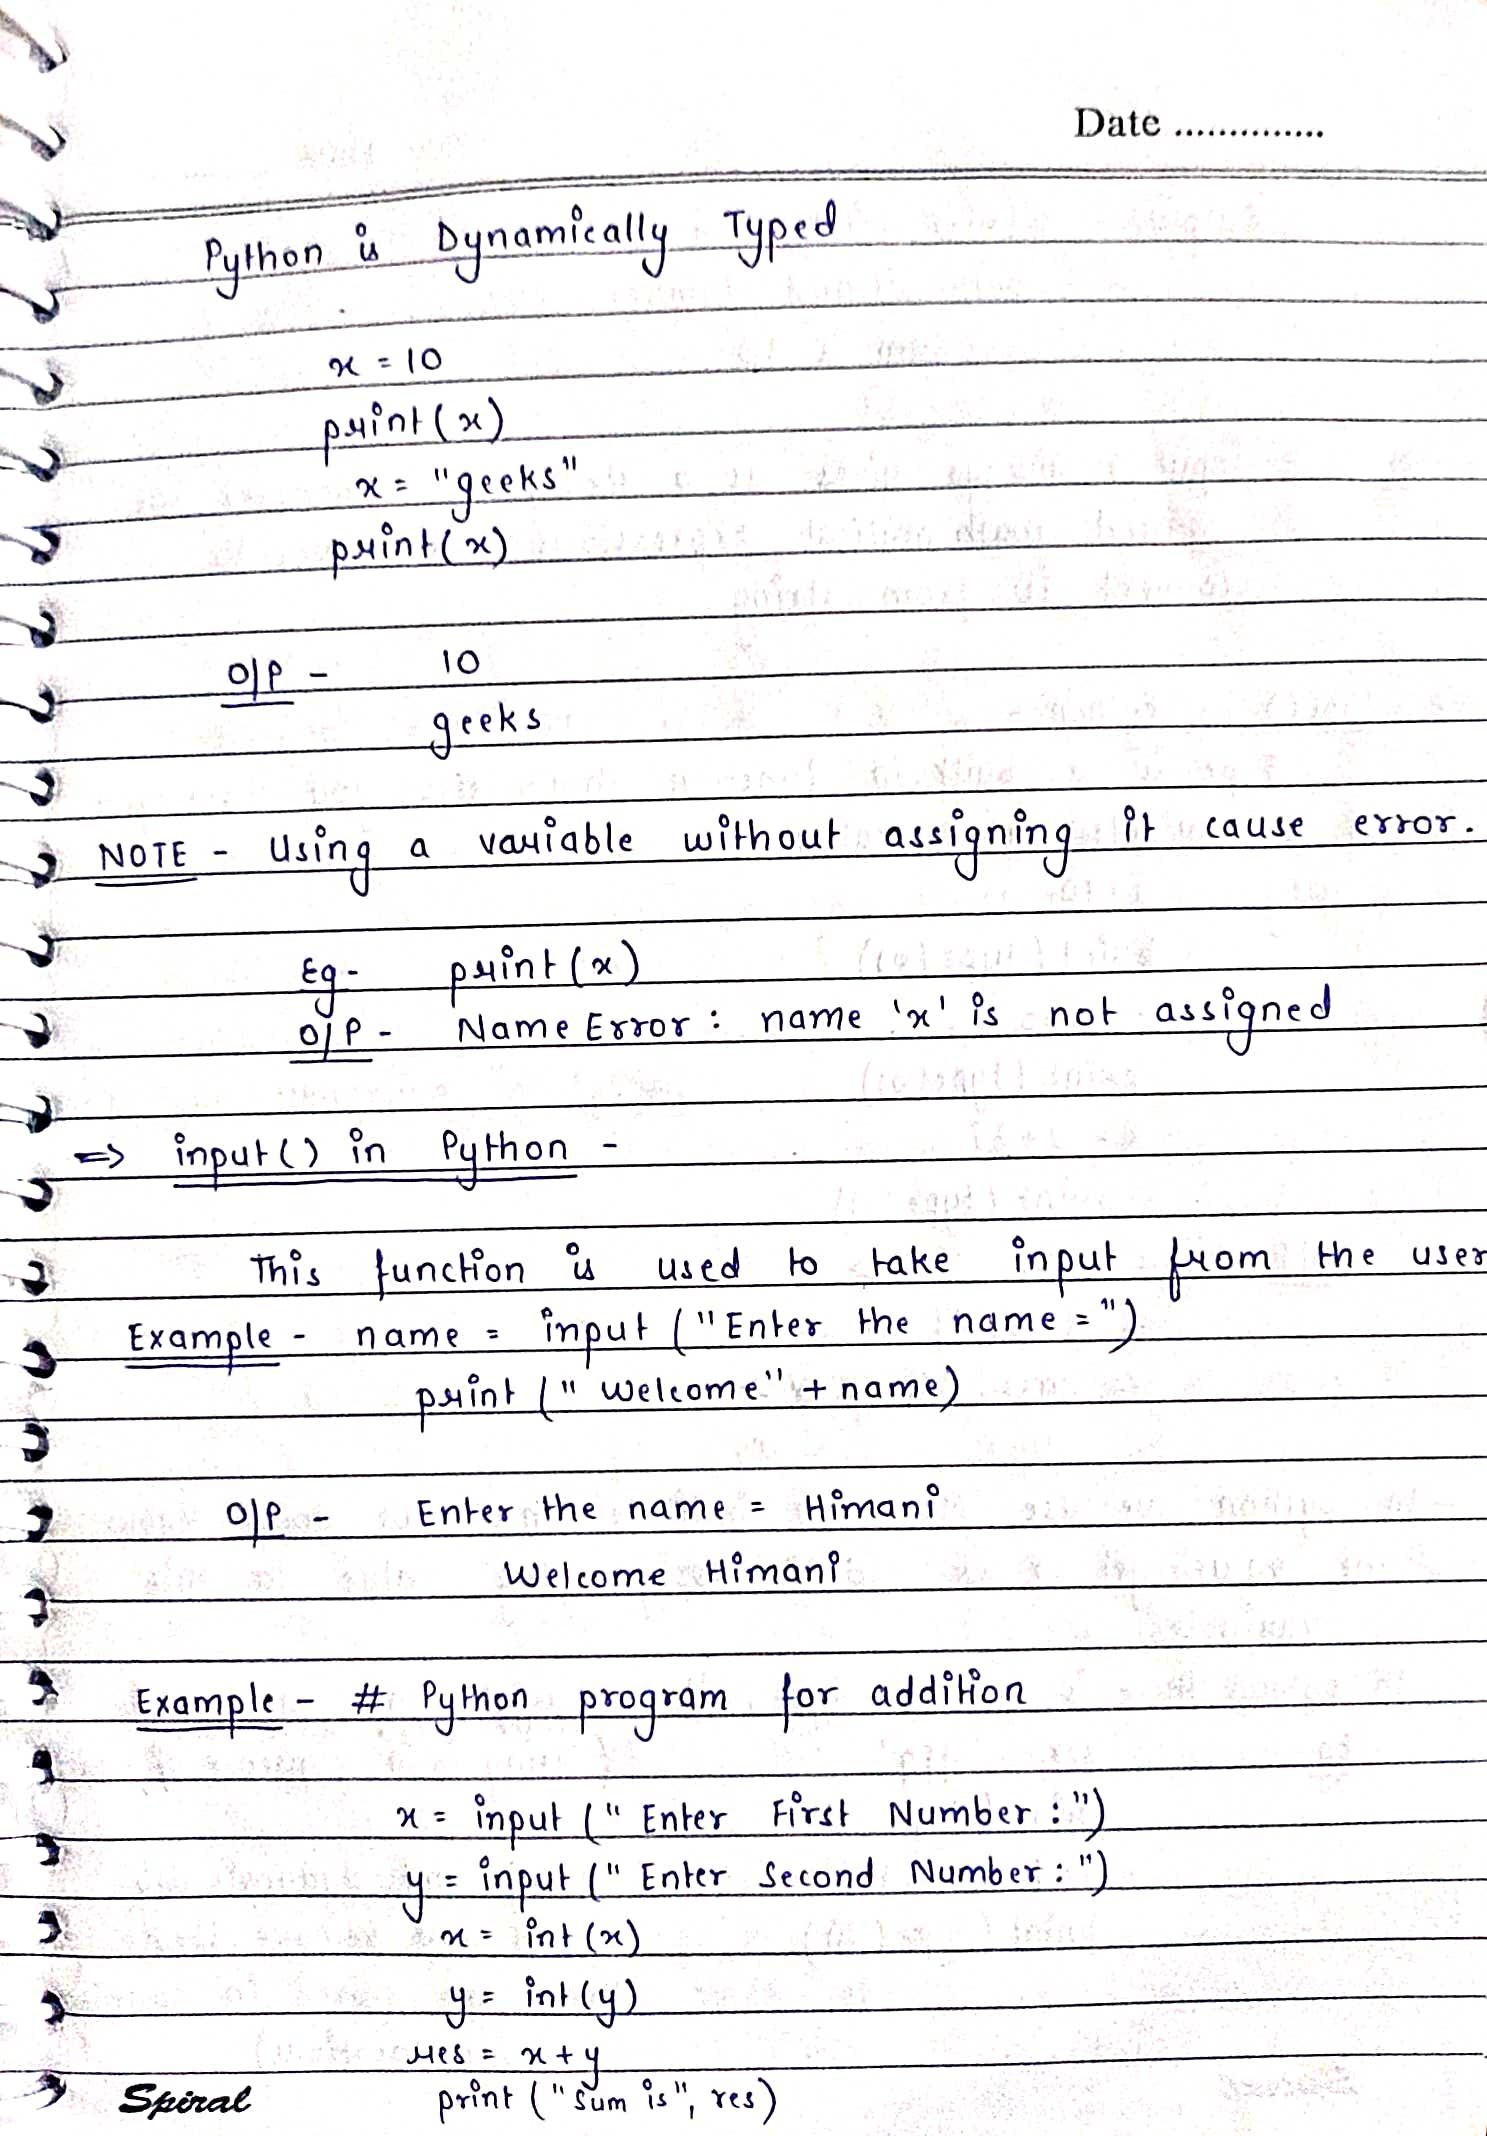 Date ..............
Python is Dynamically Typed
x = 10
print(x)
x = "geeks"
print(x)
O/P - 10
geeks
NOTE - Using a variable without assigning it cause error.
Eg - print(x)
O/P - Name Error : name 'x' is not assigned
=> input() in Python -
This function is used to take input from the user
Example - name = input ("Enter the name =")
print (" Welcome" + name)
O/P - Enter the name = Himani
Welcome Himani
Example - # Python program for addition
x = input (" Enter First Number :")
y = input (" Enter Second Number : ")
x = int (x)
y = int (y)
res = x + y
print ("Sum is", res)
Spiral